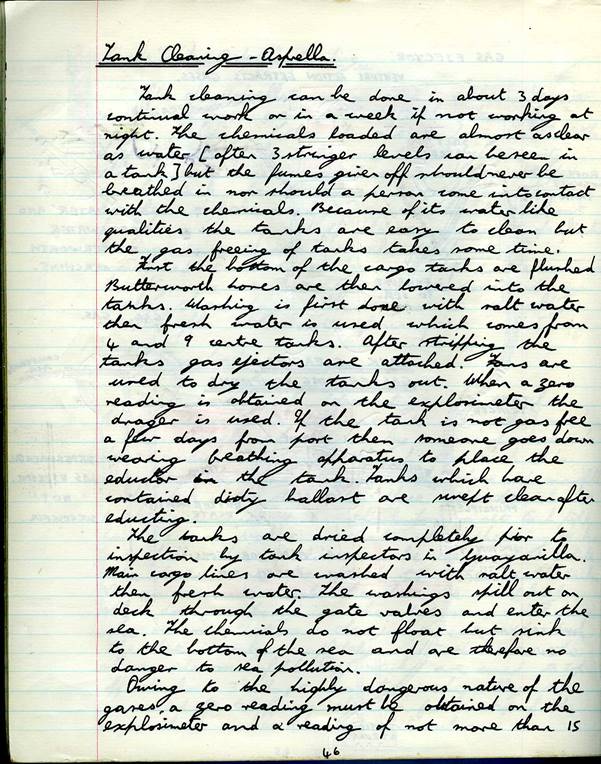 Tank Cleaning - Asprella.
Tank cleaning can be done in about 3 days
continual work or in a week if not working at
night. The chemicals loaded are almost as clear
as water [after 3 stringer levels can be seen in
a tank] but the fumes given off should never be
breathed in nor should a person come into contact
with the chemicals. Because of its water like
qualities the tanks are easy to clean but
the gas freeing of tanks takes some time.
First the bottom of the cargo tanks are flushed
Butterworth hoses are then lowered into the
tanks. Washing is first done with salt water
then fresh water is used which comes from
4 and 9 centre tanks. After stripping the
tanks gas ejectors are attached. Fans are
used to dry the tanks out. When a zero
reading is obtained on the explosimeter the
drager is used. If the tank is not gas free
a few days from port then someone goes down
wearing breathing apparatus to place the
eductor in the tank. Tanks which have
contained dirty ballast are swept clean after
educting.
The tanks are dried completely prior to
inspection by tank inspectors in Guayanilla.
Main cargo lines are washed with salt water
then fresh water. The washings spill out on
deck through the gate valves and enter the
sea. The chemicals do not float but sink
to the bottom of the sea and are therefore no
danger to sea pollution.
Owing to the highly dangerous nature of the
gases, a zero reading must be obtained on the
explosimeter and a reading of not more than 15
46